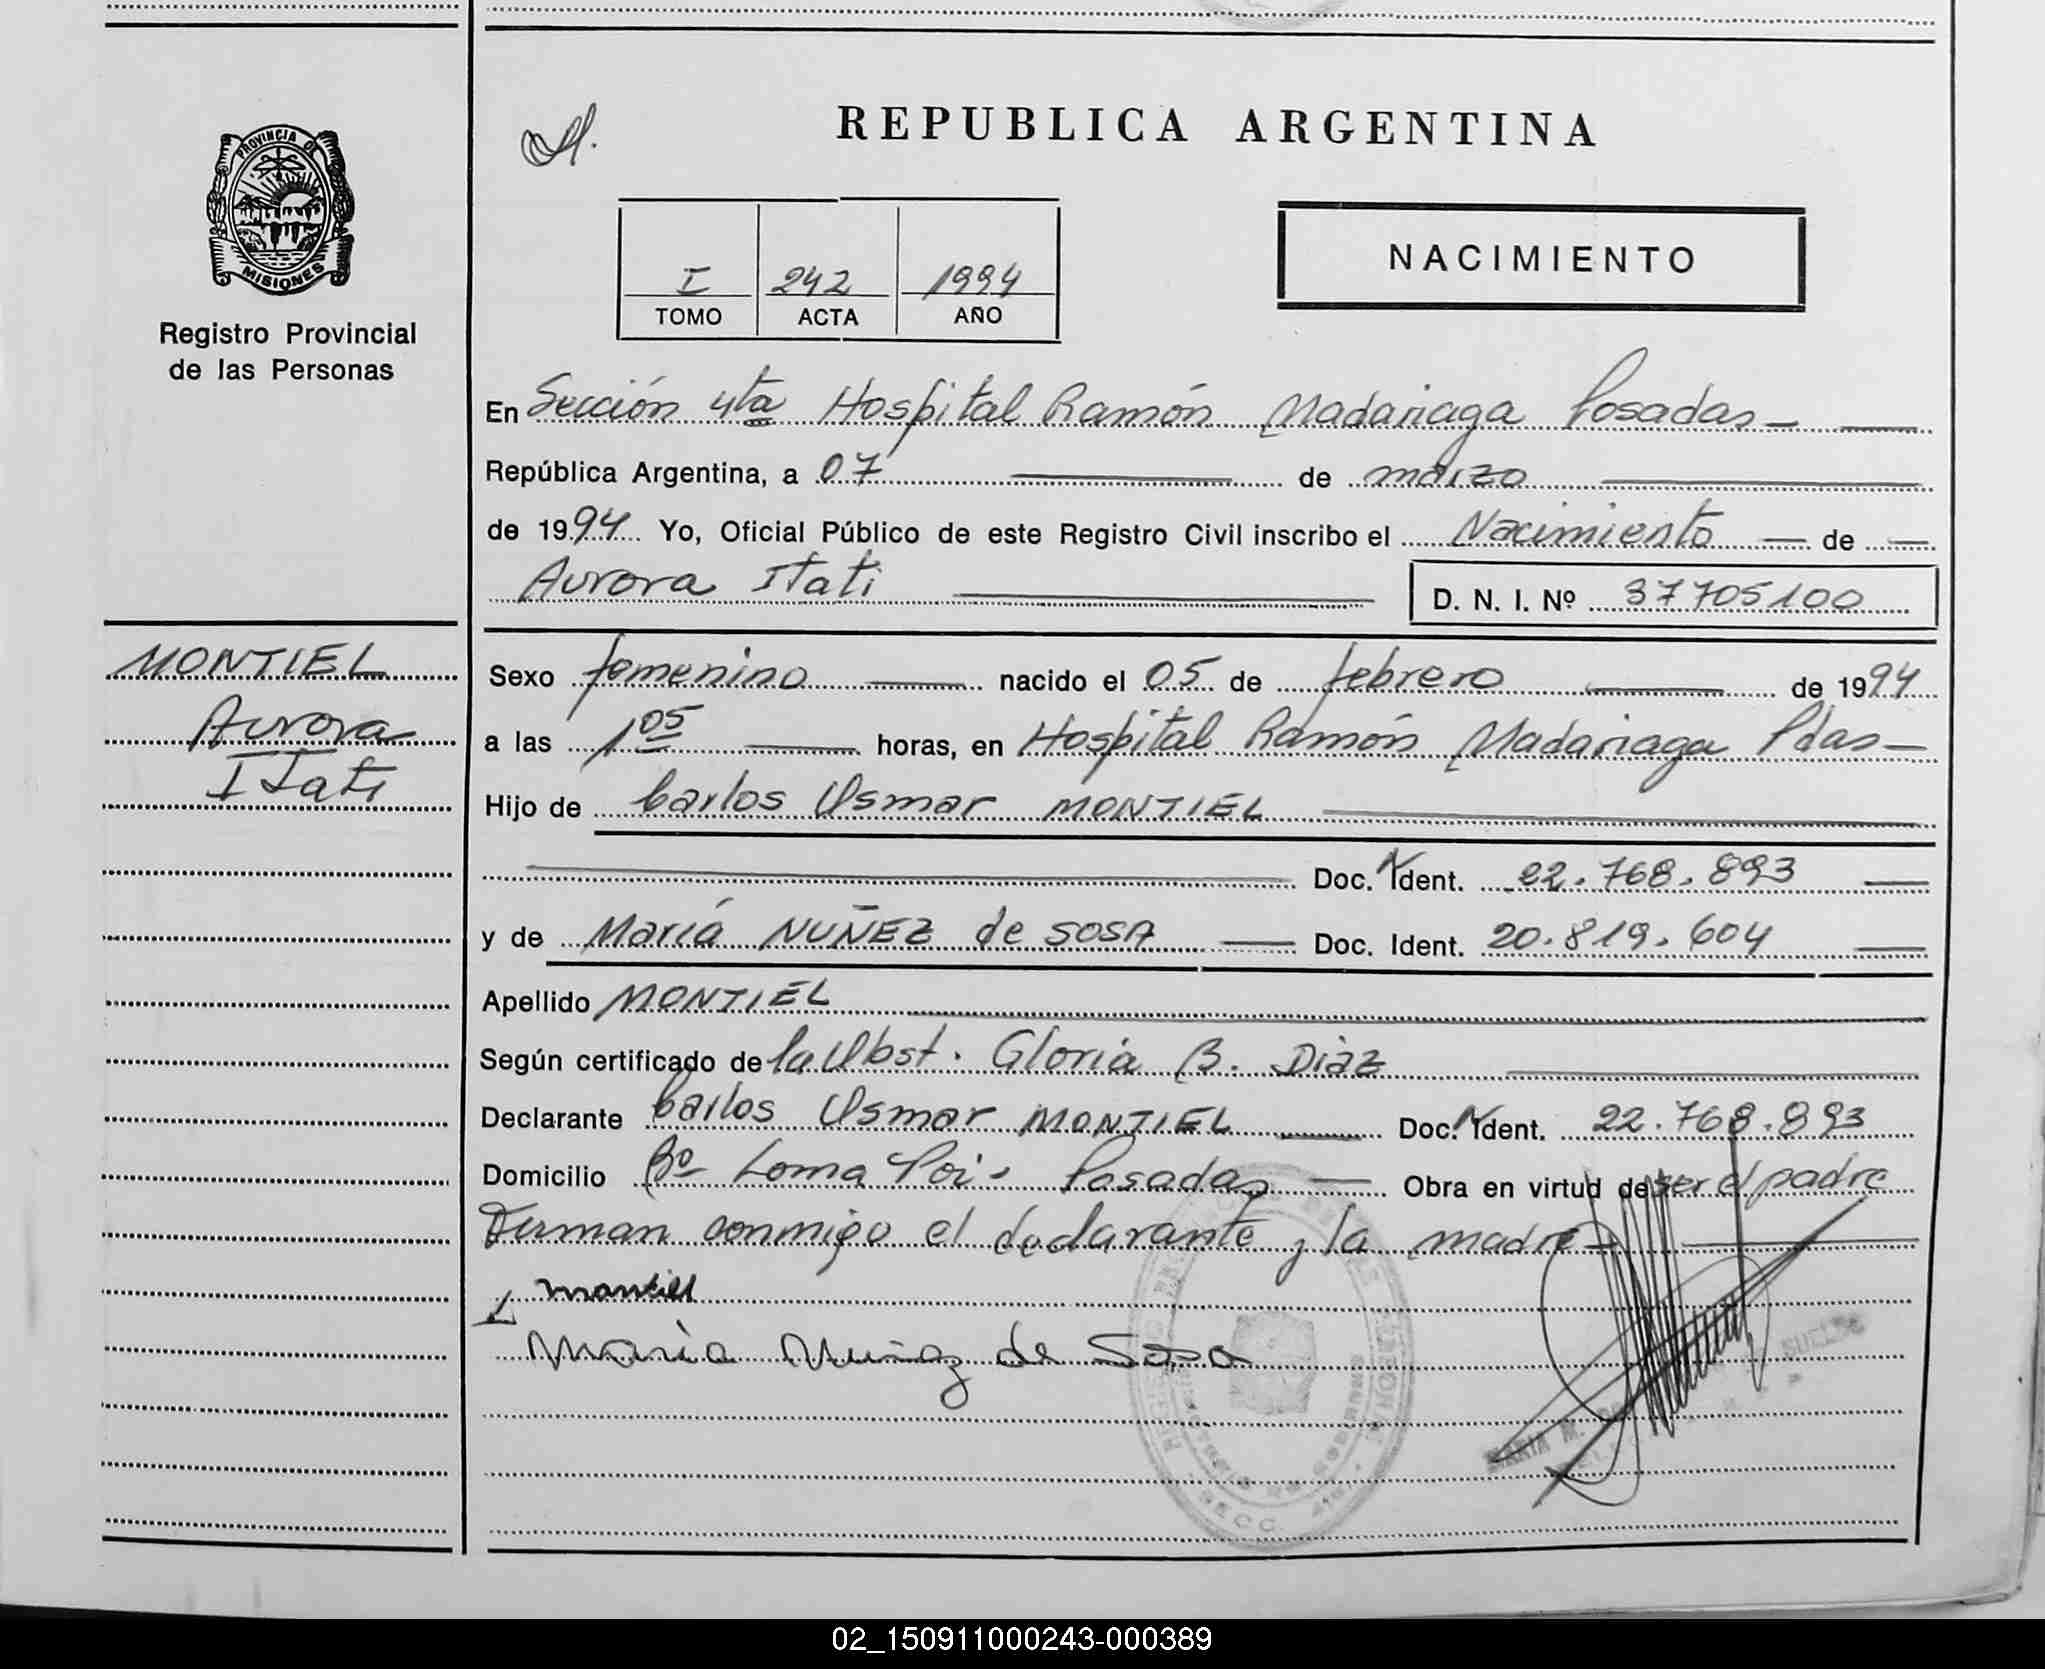 REPUBLICA ARGENTINA
PROVINCIA DE
MISIONES
Registro Provincial
de las Personas
I 242 1994
TOMO ACTA AÑO
NACIMIENTO
En Sección 4ta Hospital Ramón Madariaga Posadas
República Argentina, a 07 de marzo
de 1994 Yo, Oficial Público de este Registro Civil inscribo el Nacimiento de
Aurora Itati D. N. I. Nº 37705100
MONTIEL
Aurora
Itati
Sexo femenino nacido el 05 de febrero de 1994
a las 1 05 horas, en Hospital Ramón Madariaga Pdas
Hijo de Carlos Osmar MONTIEL
Doc. Ident. 22.768.893
y de María NUÑEZ de SOSA Doc. Ident. 20.819.604
Apellido MONTIEL
Según certificado de la Obst. Gloria B. Diaz
Declarante Carlos Osmar MONTIEL Doc. Ident. 22.768.893
Domicilio Bº Loma Poi. Posadas Obra en virtud de ser el padre
Firman conmigo el declarante y la madre
María Nuñez de Sosa
MARIA M.
02_150911000243-000389